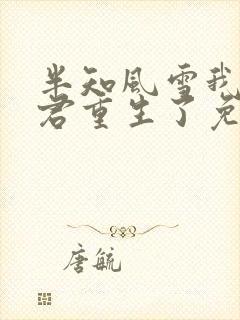 半知风雪我
君重生了免
唐毓